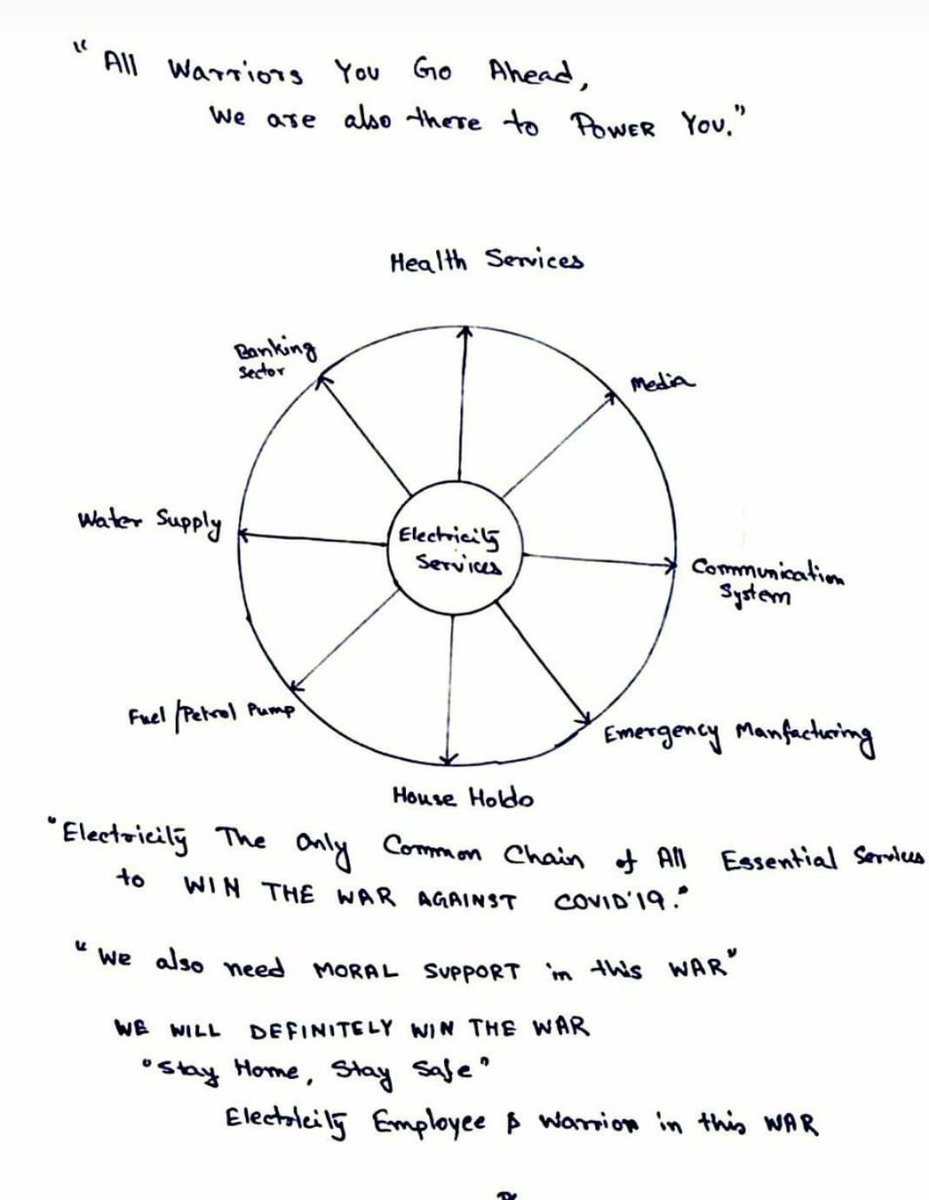 "All Warriors You Go Ahead,
We are also there to POWER YOU."
Health Services
Banking
Sector
Media
Water Supply
Electricity
Services
Communication
System
Fuel/Petrol Pump
Emergency Manfacturing
House Holdo
"Electricity The Only Common Chain of All Essential Services
to WIN THE WAR AGAINST COVID'19."
"We also need MORAL SUPPORT in this WAR"
WE WILL DEFINITELY WIN THE WAR
"Stay Home, Stay Safe"
Electricity Employee & Warrior in this WAR